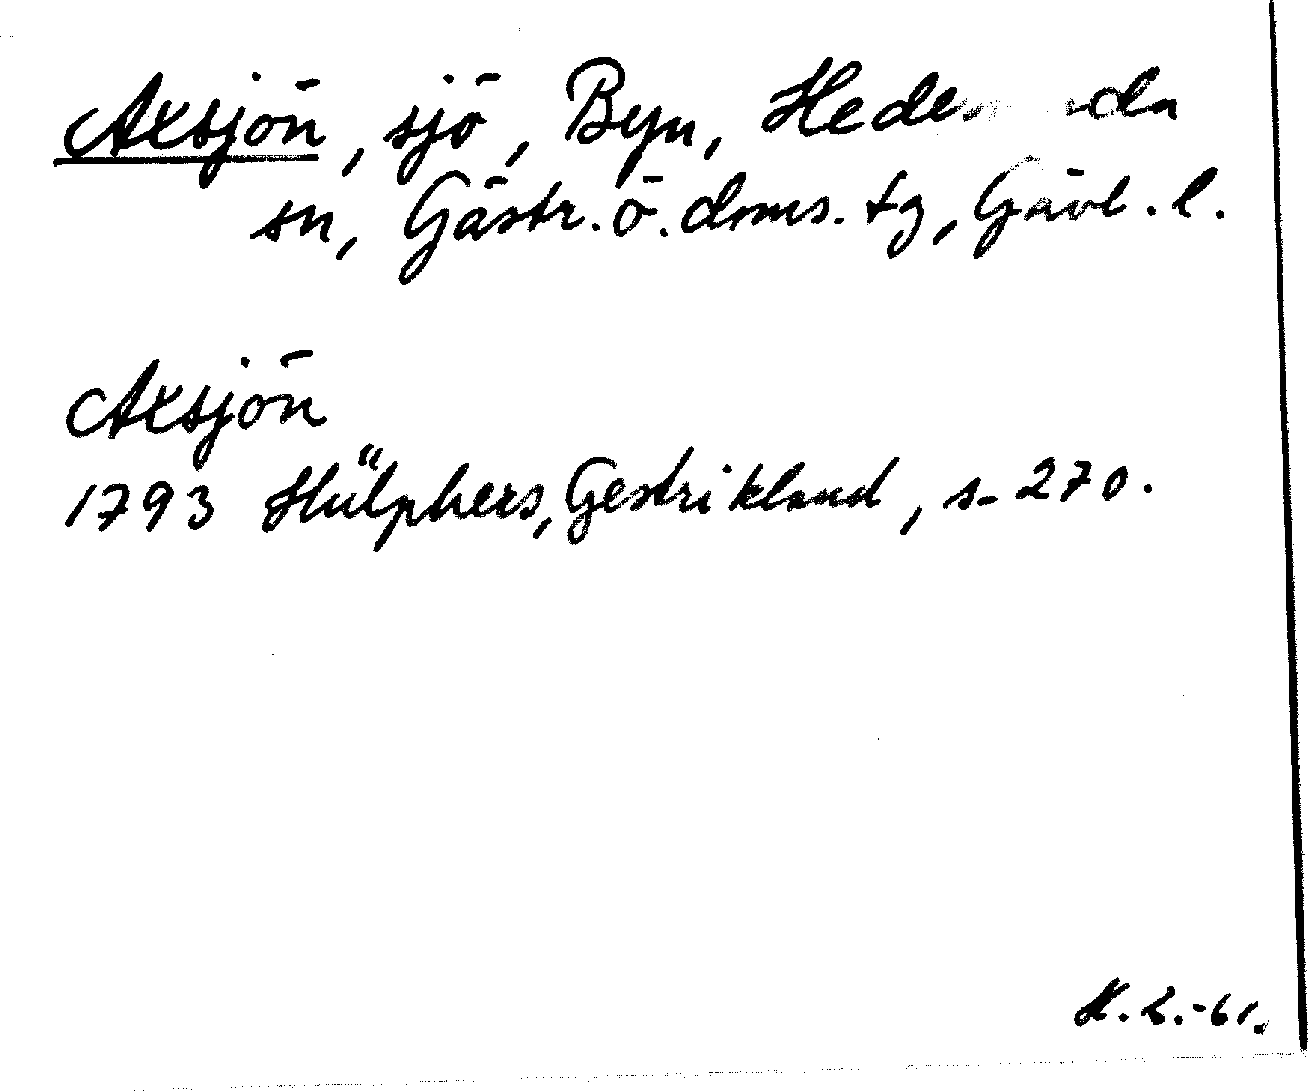 Axsjön, sjö, Byn, Hedesunda
sn, Gästr. ö. doms. tg, Gävl. l.
Axsjön
1793 Hülphers, Gestrikland, s. 270.
H. L. -61.